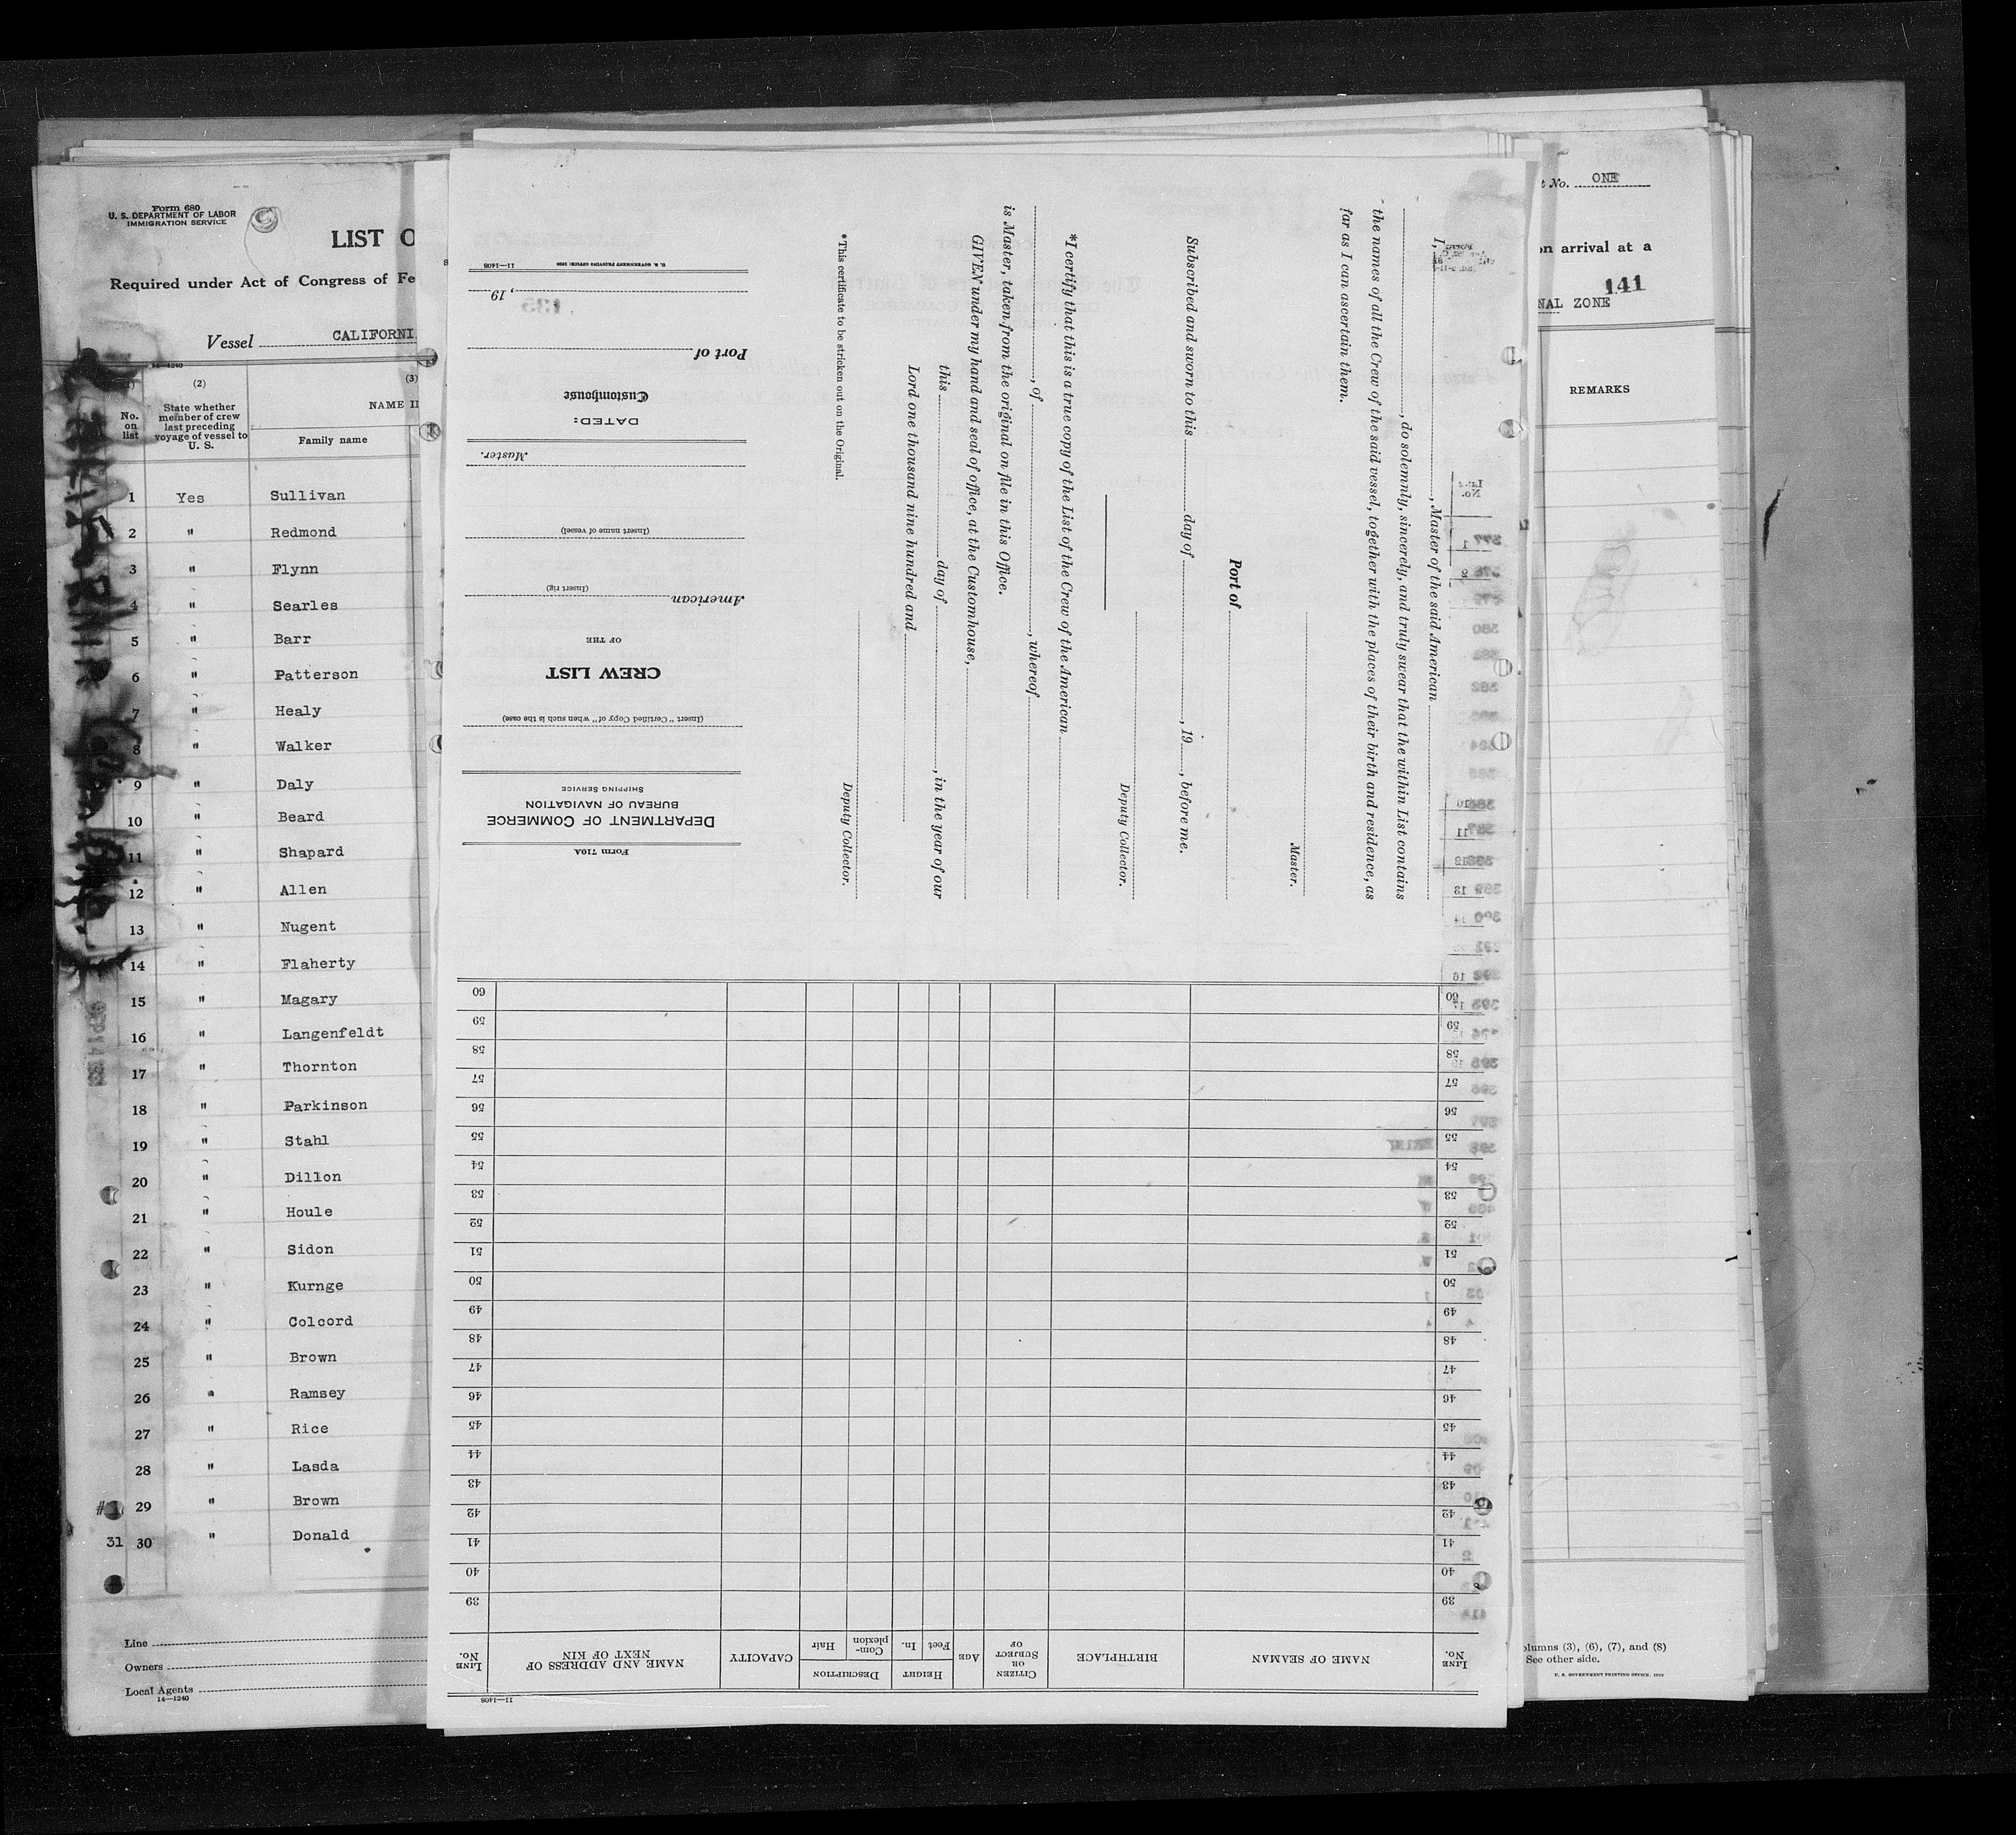 Form 680
U. S. DEPARTMENT OF LABOR
IMMIGRATION SERVICE
LIST O
Required under Act of Congress of Fe
Vessel CALIFORNI
14—1240
(2)
(3)
No. on list
State whether member of crew last preceding voyage of vessel to U. S.
NAME I
Family name
1 Yes Sullivan
2 " Redmond
3 " Flynn
4 " Searles
5 " Barr
6 " Patterson
7 " Healy
8 " Walker
9 " Daly
10 " Beard
11 " Shapard
12 " Allen
13 " Nugent
14 " Flaherty
15 " Magary
16 " Langenfeldt
17 " Thornton
18 " Parkinson
19 " Stahl
20 " Dillon
21 " Houle
22 " Sidon
23 " Kurnge
24 " Colcord
25 " Brown
26 " Ramsey
27 " Rice
28 " Lasda
29 " Brown
31 30 " Donald
Line
Owners
Local Agents
14—1240
Form 710A
DEPARTMENT OF COMMERCE
BUREAU OF NAVIGATION
SHIPPING SERVICE
(Insert "Certified Copy of" when such is the case)
CREW LIST
OF THE
American
(Insert rig)
(Insert name of vessel)
Master.
DATED:
Customhouse
Port of
, 19
U. S. GOVERNMENT PRINTING OFFICE: 1930 11—1408
I, , Master of the said American
, do solemnly, sincerely, and truly swear that the within List contains
the names of all the Crew of the said vessel, together with the places of their birth and residence, as
far as I can ascertain them.
Master.
Port of
Subscribed and sworn to this day of , 19 , before me.
Deputy Collector.
*I certify that this is a true copy of the List of the Crew of the American
, of , whereof
is Master, taken from the original on file in this Office.
GIVEN under my hand and seal of office, at the Customhouse,
this day of , in the year of our
Lord one thousand nine hundred and
Deputy Collector.
*This certificate to be stricken out on the Original.
11—1408
LINE No.
NAME OF SEAMAN
BIRTHPLACE
CITIZEN OR SUBJECT OF
AGE
HEIGHT
Feet
In.
DESCRIPTION
Complexion
Hair
CAPACITY
NAME AND ADDRESS OF NEXT OF KIN
LINE No.
39 39
40 40
41 41
42 42
43 43
44 44
45 45
46 46
47 47
48 48
49 49
50 50
51 51
52 52
53 53
54 54
55 55
56 56
57 57
58 58
59 59
60 60
t No. ONE
on arrival at a
141
NAL ZONE
REMARKS
olumns (3), (6), (7), and (8)
See other side.
U. S. GOVERNMENT PRINTING OFFICE